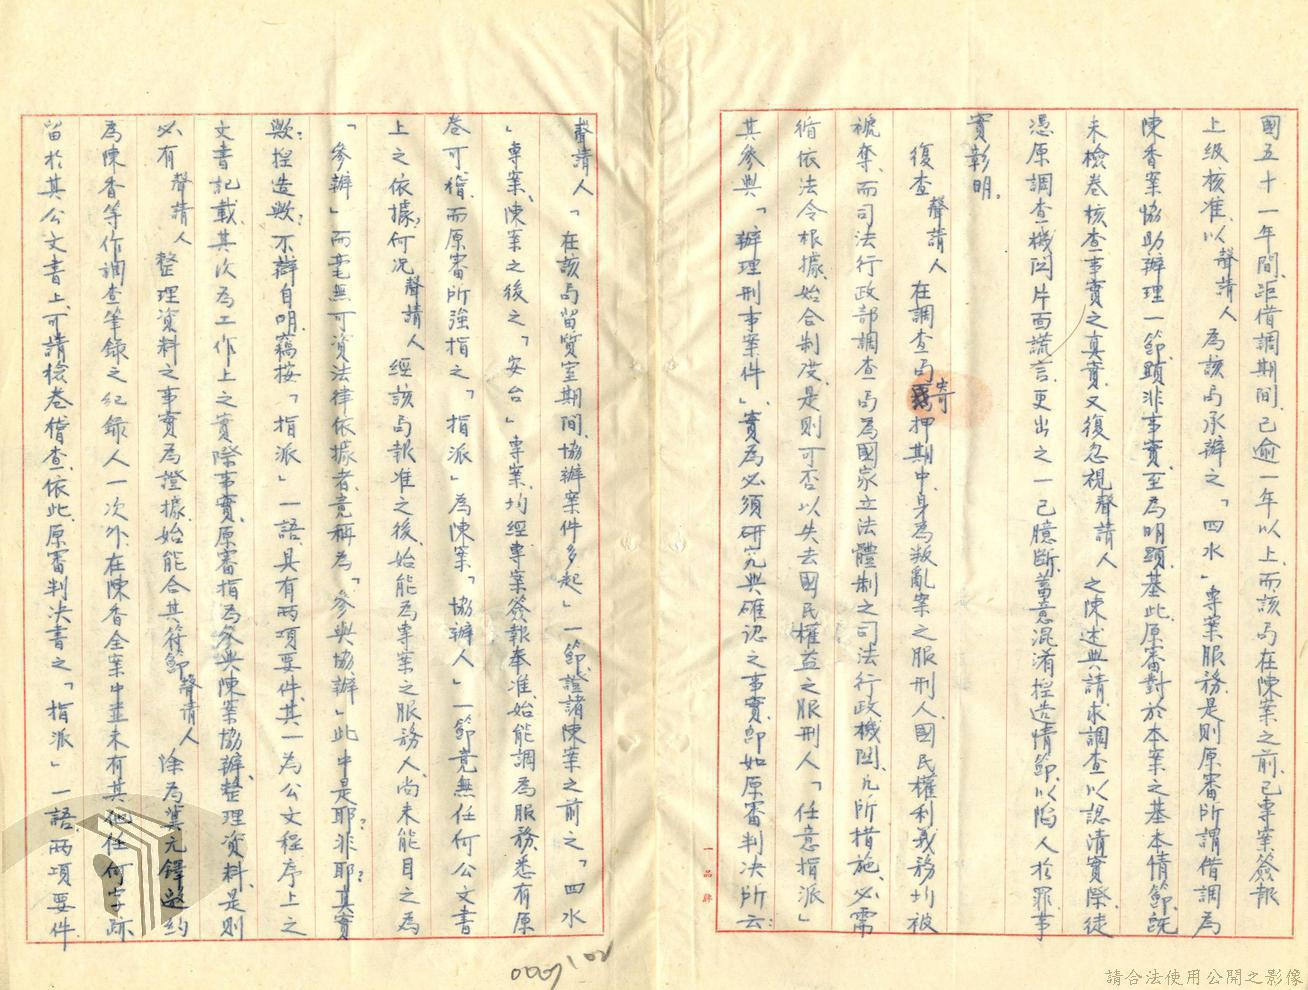 國五十一年間、距借調期間、已逾一年以上、而該局在陳案之前、已專案簽報
上級核准、以聲請人為該局承辦之「四水」專案服務、是則原審所謂借調為
陳香案協助辦理一節、顯非事實、至為明顯、基此、原審對於本案之基本情節、既
未檢卷核查事實之真實、又復忽視聲請人之陳述與請求調查、以認清實際、徒
憑原調查機関片面謊言、更出之一己臆斷、蓄意混淆、捏造情節、以陷人於罪、事
實彰明。
復查聲請人在調查局寄押期中、身為叛亂案之服刑人、國民權利義務均被
褫奪、而司法行政部調查局為國家立法體制之司法行政機関、凡所措施、必需
循依法令根據、始合制度、是則可否以失去國民權益之服刑人「任意指派」
其參與「辦理刑事案件」、實為必須研究與確認之事實、即如原審判決所云：
聲請人「在該局留質室期間、協辦案件多起」一節、證諸陳案之前之「四水
」專案、陳案之後之「安台」專案、均經專案簽報奉准、始能調為服務、悉有原
卷可稽、而原審所強指之「指派」為陳案「協辦人」一節、竟無任何公文書
上之依據、何況聲請人經該局報准之後、始能為專案之服務人、尚未能目之為
「參辦」而毫無可資法律依據者、竟稱為「參與協辦」此中是耶？非耶？真實
歟？捏造歟？不辯自明、竊按「指派」一語、具有兩項要件、其一為公文程序上之
文書記載、其次為工作上之實際事實、原審指為參與陳案協辦、整理資料、是則
必有聲請人整理資料之事實為證據、始能合其符節、聲請人除為冀元鐸邀約
為陳香等作調查筆錄之紀錄人一次外、在陳香全案中並未有其他任何字跡
留於其公文書上、可請檢卷稽查、依此、原審判決書之「指派」一語、兩項要件
一品牌
請合法使用公開之影像